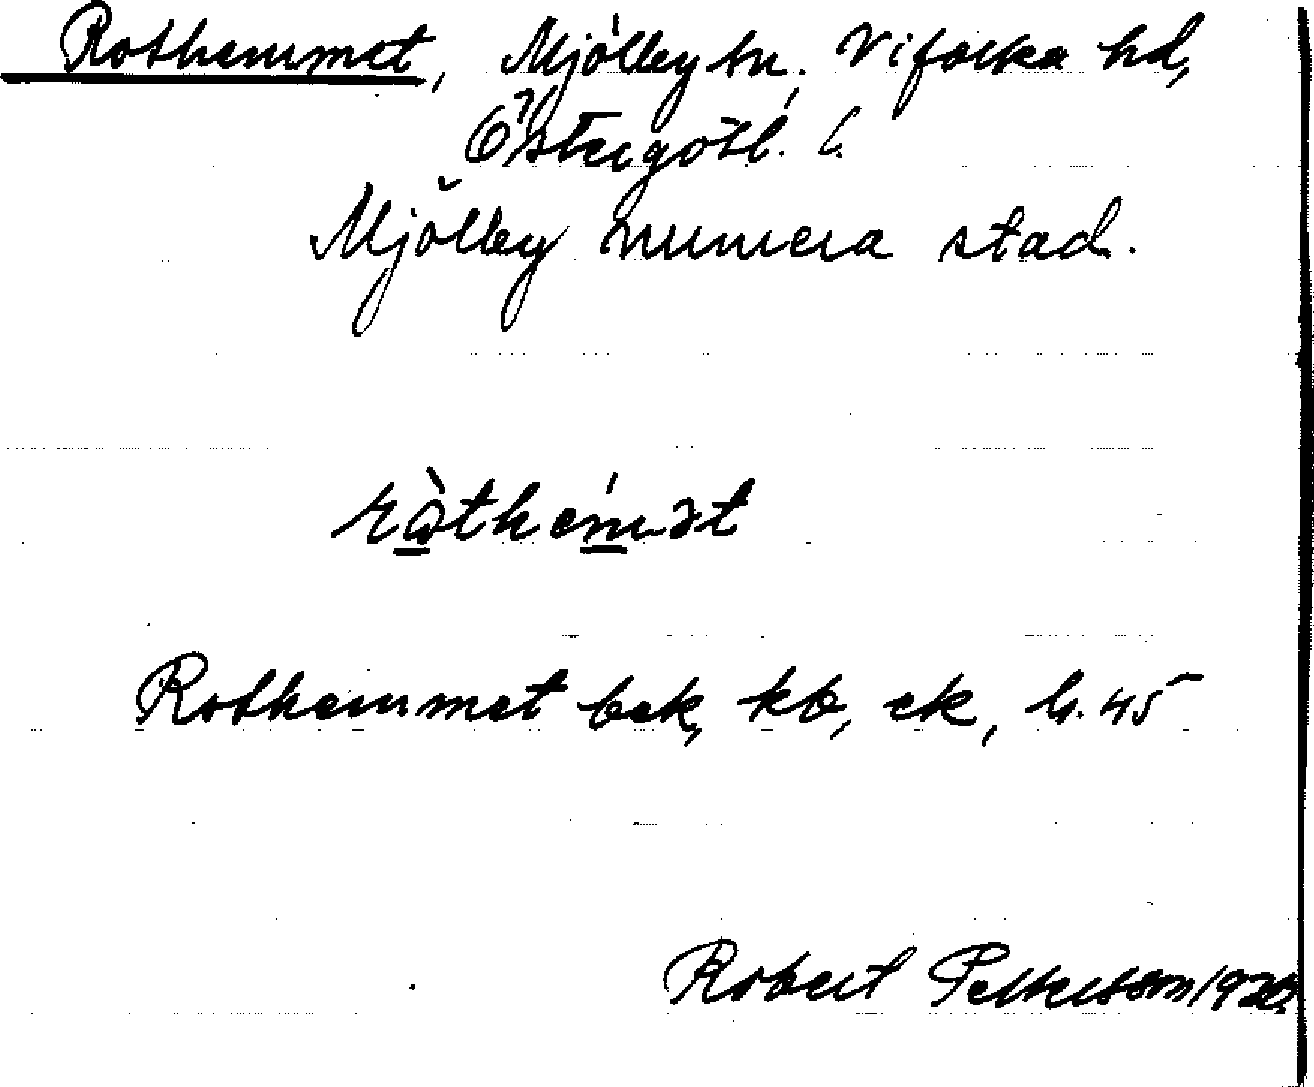 Rothemmet, Mjölby sn, Vifolka hd,
Östergötl. l.
Mjölby numera stad.
ròthem̲ət
Rothemmet bek, kb, ek, h. 45
Robert Pettersson 1920.